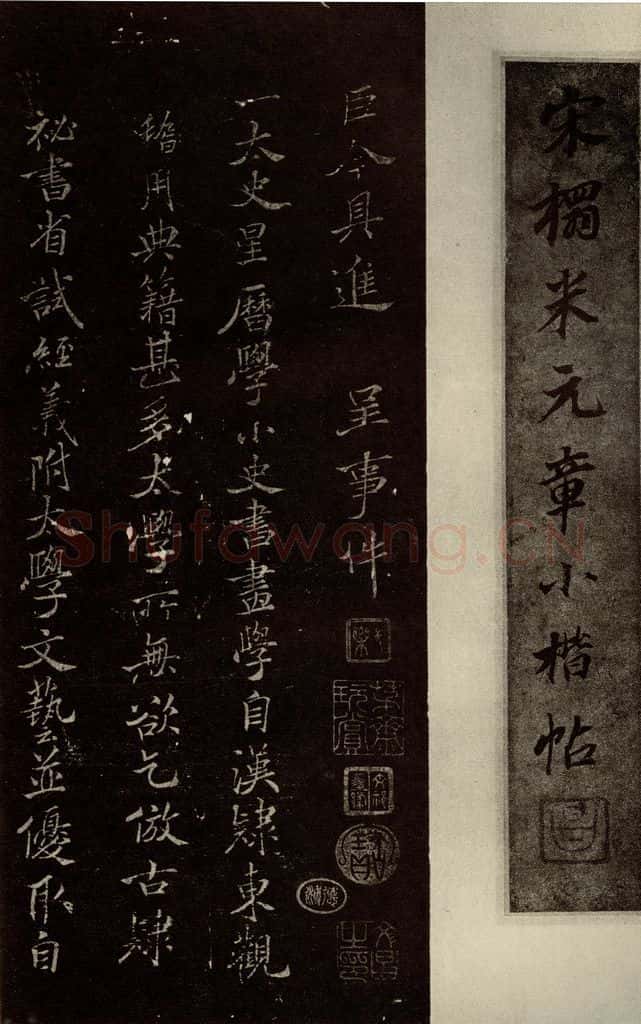 宋榻米元章小楷帖
臣今具進 呈事件
一太史星曆學小史書畫學自漢隸東觀
脩用典籍甚多太學所無欲乞倣古隸
祕書省試經義附太學文藝並優取自
Shufawang.CN